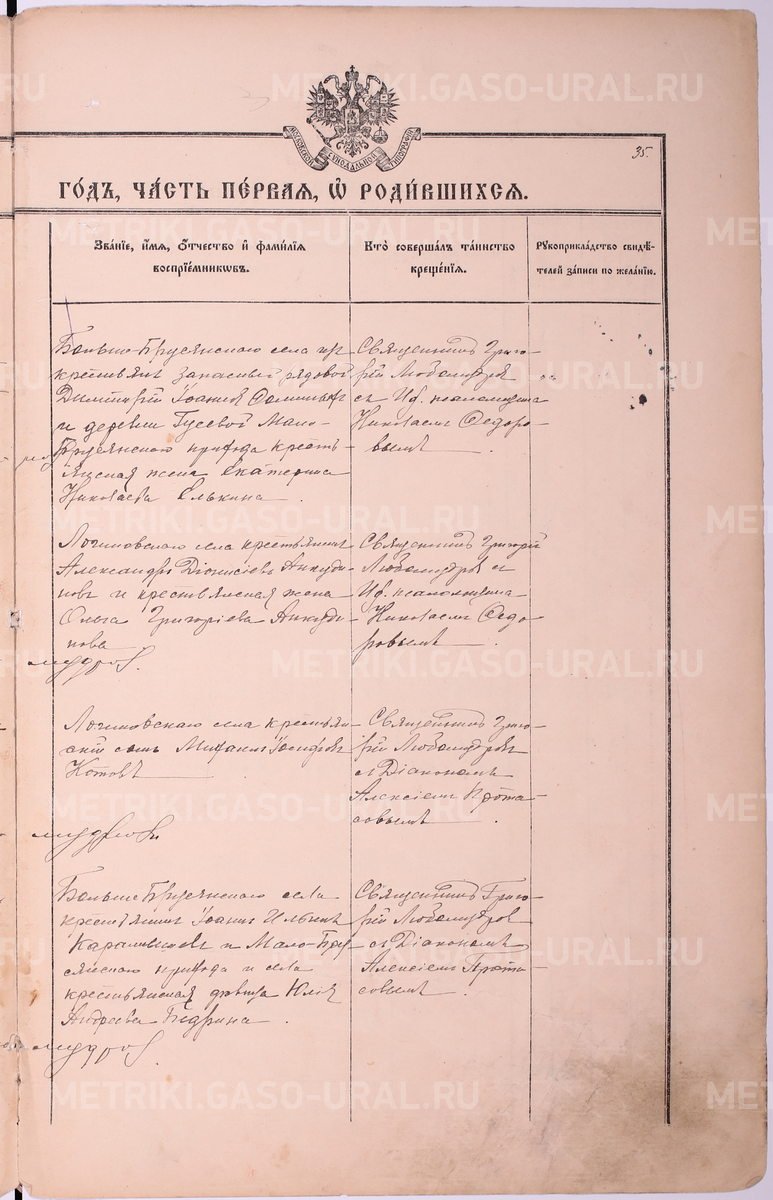 METRIKI.GASO-URAL.RU
35.
МОСКОВСКОЙ СѴНОДАЛЬНОЙ ТИПОГРАФІИ
ГО́ДЪ, ЧА́СТЬ ПЕ́РВАЯ, Ѡ҆ РОДИ́ВШИХСЯ.
Зва́ніе, и҆́мя, Ѻ҆́тчество и҆ фами́лія
воспріе́мникѡвъ.
Кто̀ соверша́лъ та́инство
креще́нія.
Рꙋкоприкла́дство свидѣ́-
телей за́писи по жела́нію.
Больше-Брусянскаго села изъ
крестьянъ запасный рядовой
Димитрій Іоанновъ
и деревни Гусевой Мало-
Брусянскаго прихода кресть-
янская жена Екатерина
Николаева Елькина
Священникъ Григо-
рій Любомудровъ
съ И. д. псаломщика
Николаемъ Федоро-
вымъ
Логиновскаго села крестьянинъ
Александръ Діонисіевъ Анкуди-
новъ и крестьянская жена
Ольга Григоріева Анкуди-
нова
Священникъ Григорій
Любомудровъ съ
И. д. псаломщика
Николаемъ Федо-
ровымъ
мудровъ.
Логиновскаго села крестьян-
скій сынъ Михаилъ Іосифовъ
Котовъ
Священникъ Григо-
рій Любомудровъ
съ Діакономъ
Алексіемъ Прота-
совымъ
мудровъ
Больше Брусянскаго села
крестьянинъ Іоаннъ Ильинъ
Карамышевъ и Мало-Бру-
сянскаго прихода и села
крестьянская дѣвица Юлія
Андреева Бедрина
Священникъ Григо-
рій Любомудровъ
съ Діакономъ
Алексіемъ Прота-
совымъ
мудровъ.